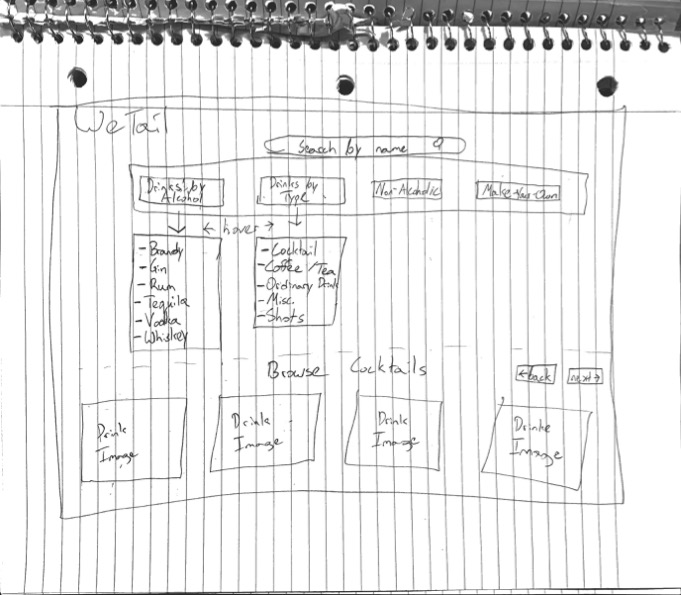 WeTail
Search by name
Drinks by
Alcohol
Drinks by
Type
Non-Alcoholic
Make-Your-Own
← hover →
- Brandy
- Gin
- Rum
- Tequila
- Vodka
- Whiskey
- Cocktail
- Coffee / Tea
- Ordinary Drink
- Misc.
- Shots
Browse Cocktails
←back
next→
Drink
Image
Drink
Image
Drink
Image
Drink
Image